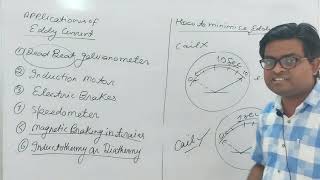 Applications of
Eddy Current
① Dead Beat galvanometer
② Induction Motor
③ Electric Brakes
④ Speedometer
⑤ magnetic Braking in trains
⑥ Inductothermy or Diathermy
How to minimise Eddy
Coil X
10 Sec
Coil Y